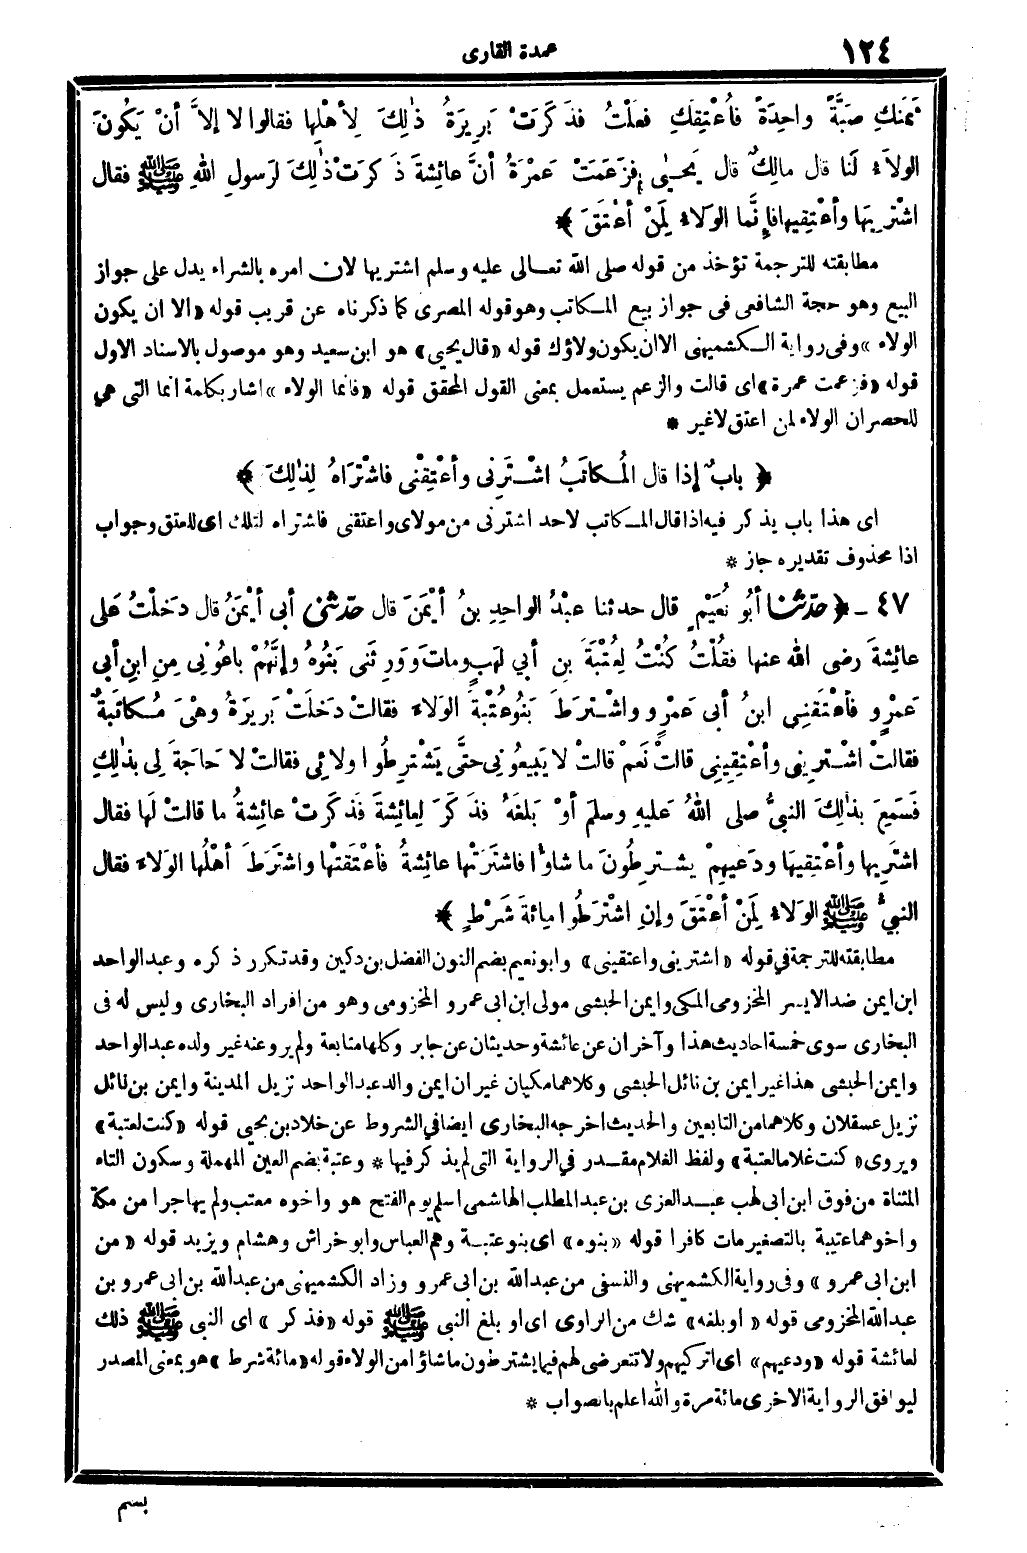 ١٢٤ عمدة القارى
ثَمَنَكِ صَبَّةً واحِدَةً فأُعْتِقَكِ فعلْتُ فذَكَرَتْ بَرِيرَةُ ذٰلِكَ لِأهْلِها فقالوا لا إلاَّ أنْ يَكُونَ
الولاَءُ لَنا قال مالِكٌ قال يَحيٰى فزَعَمَتْ عَمْرَةُ أنَّ عائِشَةَ ذَكَرَتْ ذٰلِكَ لرَسولِ اللهِ ﷺ فقال
اشْتَرِيها وأعْتِقِيها فإنَّما الوَلاَءُ لِمَنْ أعْتَقَ ﴾
مطابقته للترجمة تؤخذ من قوله صلى الله تعالى عليه وسلم اشتريها لان امره بالشراء يدل على جواز
البيع وهو حجة الشافعى فى جواز بيع المكاتب وهو قوله المصرى كما ذكرناه عن قريب قوله «الا ان يكون
الولاء» وفى رواية الكشميهنى الا ان يكون ولاؤك قوله «قال يحيى» هو ابن سعيد وهو موصول بالاسناد الاول
قوله «فزعمت عمرة» اى قالت والزعم يستعمل بمعنى القول المحقق قوله «فانما الولاء» اشار بكلمة انما التى هى
للحصر ان الولاء لمن اعتق لا غير *
﴿ بابٌ إذا قال المُكاتَبُ اشْتَرِنى وأعْتِقْنى فاشْتَرَاهُ لِذٰلِكَ ﴾
اى هذا باب يذكر فيه اذا قال المكاتب لاحد اشترنى من مولاى واعتقنى فاشتراه لذلك اى للعتق وجواب
اذا محذوف تقديره جاز *
٤٧ - ﴿ حدّثنا أبُو نُعَيْمٍ قال حدثنا عبْدُ الواحِدِ بنُ أيْمَنَ قال حدّثنى أبى أيْمَنُ قال دَخَلْتُ عَلى
عائِشةَ رضى الله عنها فقُلْتُ كُنْتُ لِعُتْبَةَ بنِ أبي لهَبٍ ومات وَوَرِثَنى بَنُوهُ وإنَّهُمْ باعُونِي مِنِ ابنِ أبى
عَمْرٍو فأعْتَقَنِي ابنُ أبى عَمْرٍو واشْتَرَطَ بَنُو عُتْبةَ الوَلاَءَ فقالتْ دَخلَتْ بَرِيرَةُ وهْىَ مُكاتَبَةٌ
فقالتْ اشْتَرِينِي وأعْتِقِينِى قالتْ نَعمْ قالتْ لا يَبِيعُونِي حتَّى يَشْتَرِطُوا ولائِى فقالتْ لا حَاجةَ لِى بذٰلِكِ
فَسَمِعَ بذٰلِكَ النبيُّ صلى اللهُ عَليهِ وسلّمَ أوْ بَلغَهُ فذَكَرَ لِعائِشةَ فذَكَرَتْ عائِشةُ ما قالتْ لَها فقال
اشْتَرِيها وأعْتِقِيهَا ودَعِيهِمْ يشْتَرِطُونَ ما شاؤا فاشتَرَتْها عائِشةُ فأعْتَقَتْها واشتَرَطَ أهْلُها الوَلاَءَ فقال
النبيُّ ﷺ الوَلاَءُ لِمَنْ أعْتَقَ وإنِ اشْتَرَطُوا مِائَةَ شَرْطٍ ﴾
مطابقته للترجمة فى قوله «اشترينى واعتقينى» وابو نعيم بضم النون الفضل بن دكين وقد تكرر ذكره وعبد الواحد
ابن ايمن ضد الايسر المخزومى المكى وايمن الحبشى مولى ابن ابى عمرو المخزومى وهو من افراد البخارى وليس له فى
البخارى سوى خمسة احاديث هذا وآخران عن عائشة وحديثان عن جابر وكلها متابعة ولم يرو عنه غير ولده عبد الواحد
وايمن الحبشى هذا غير ايمن بن نائل الحبشى وكلاهما مكيان غير ان ايمن والد عبد الواحد نزيل المدينة وايمن بن نائل
نزيل عسقلان وكلاهما من التابعين والحديث اخرجه البخارى ايضا فى الشروط عن خلاد بن يحيى قوله «كنت لعتبة»
ويروى «كنت غلاما لعتبة» ولفظ الغلام مقدر فى الرواية التى لم يذكر فيها * وعتبة بضم العين المهملة وسكون التاء
المثناة من فوق ابن ابى لهب عبد العزى بن عبد المطلب الهاشمى اسلم يوم الفتح هو واخوه معتب ولم يهاجرا من مكة
واخوهما عتيبة بالتصغير مات كافرا قوله «بنوه» اى بنو عتبة وهم العباس وابو خراش وهشام ويزيد قوله «من
ابن ابى عمرو» وفى رواية الكشميهنى والنسفى من عبد الله بن ابى عمرو وزاد الكشميهنى من عبد الله بن ابى عمرو بن
عبد الله المخزومى قوله «او بلغه» شك من الراوى اى او بلغ النبى ﷺ قوله «فذكر» اى النبى ﷺ ذلك
لعائشة قوله «ودعيهم» اى اتركيهم ولا تتعرضى لهم فيما يشترطون ما شاؤا من الولاء قوله «مائة شرط» هو بمعنى المصدر
ليوافق الرواية الاخرى مائة مرة والله اعلم بالصواب *
بسم